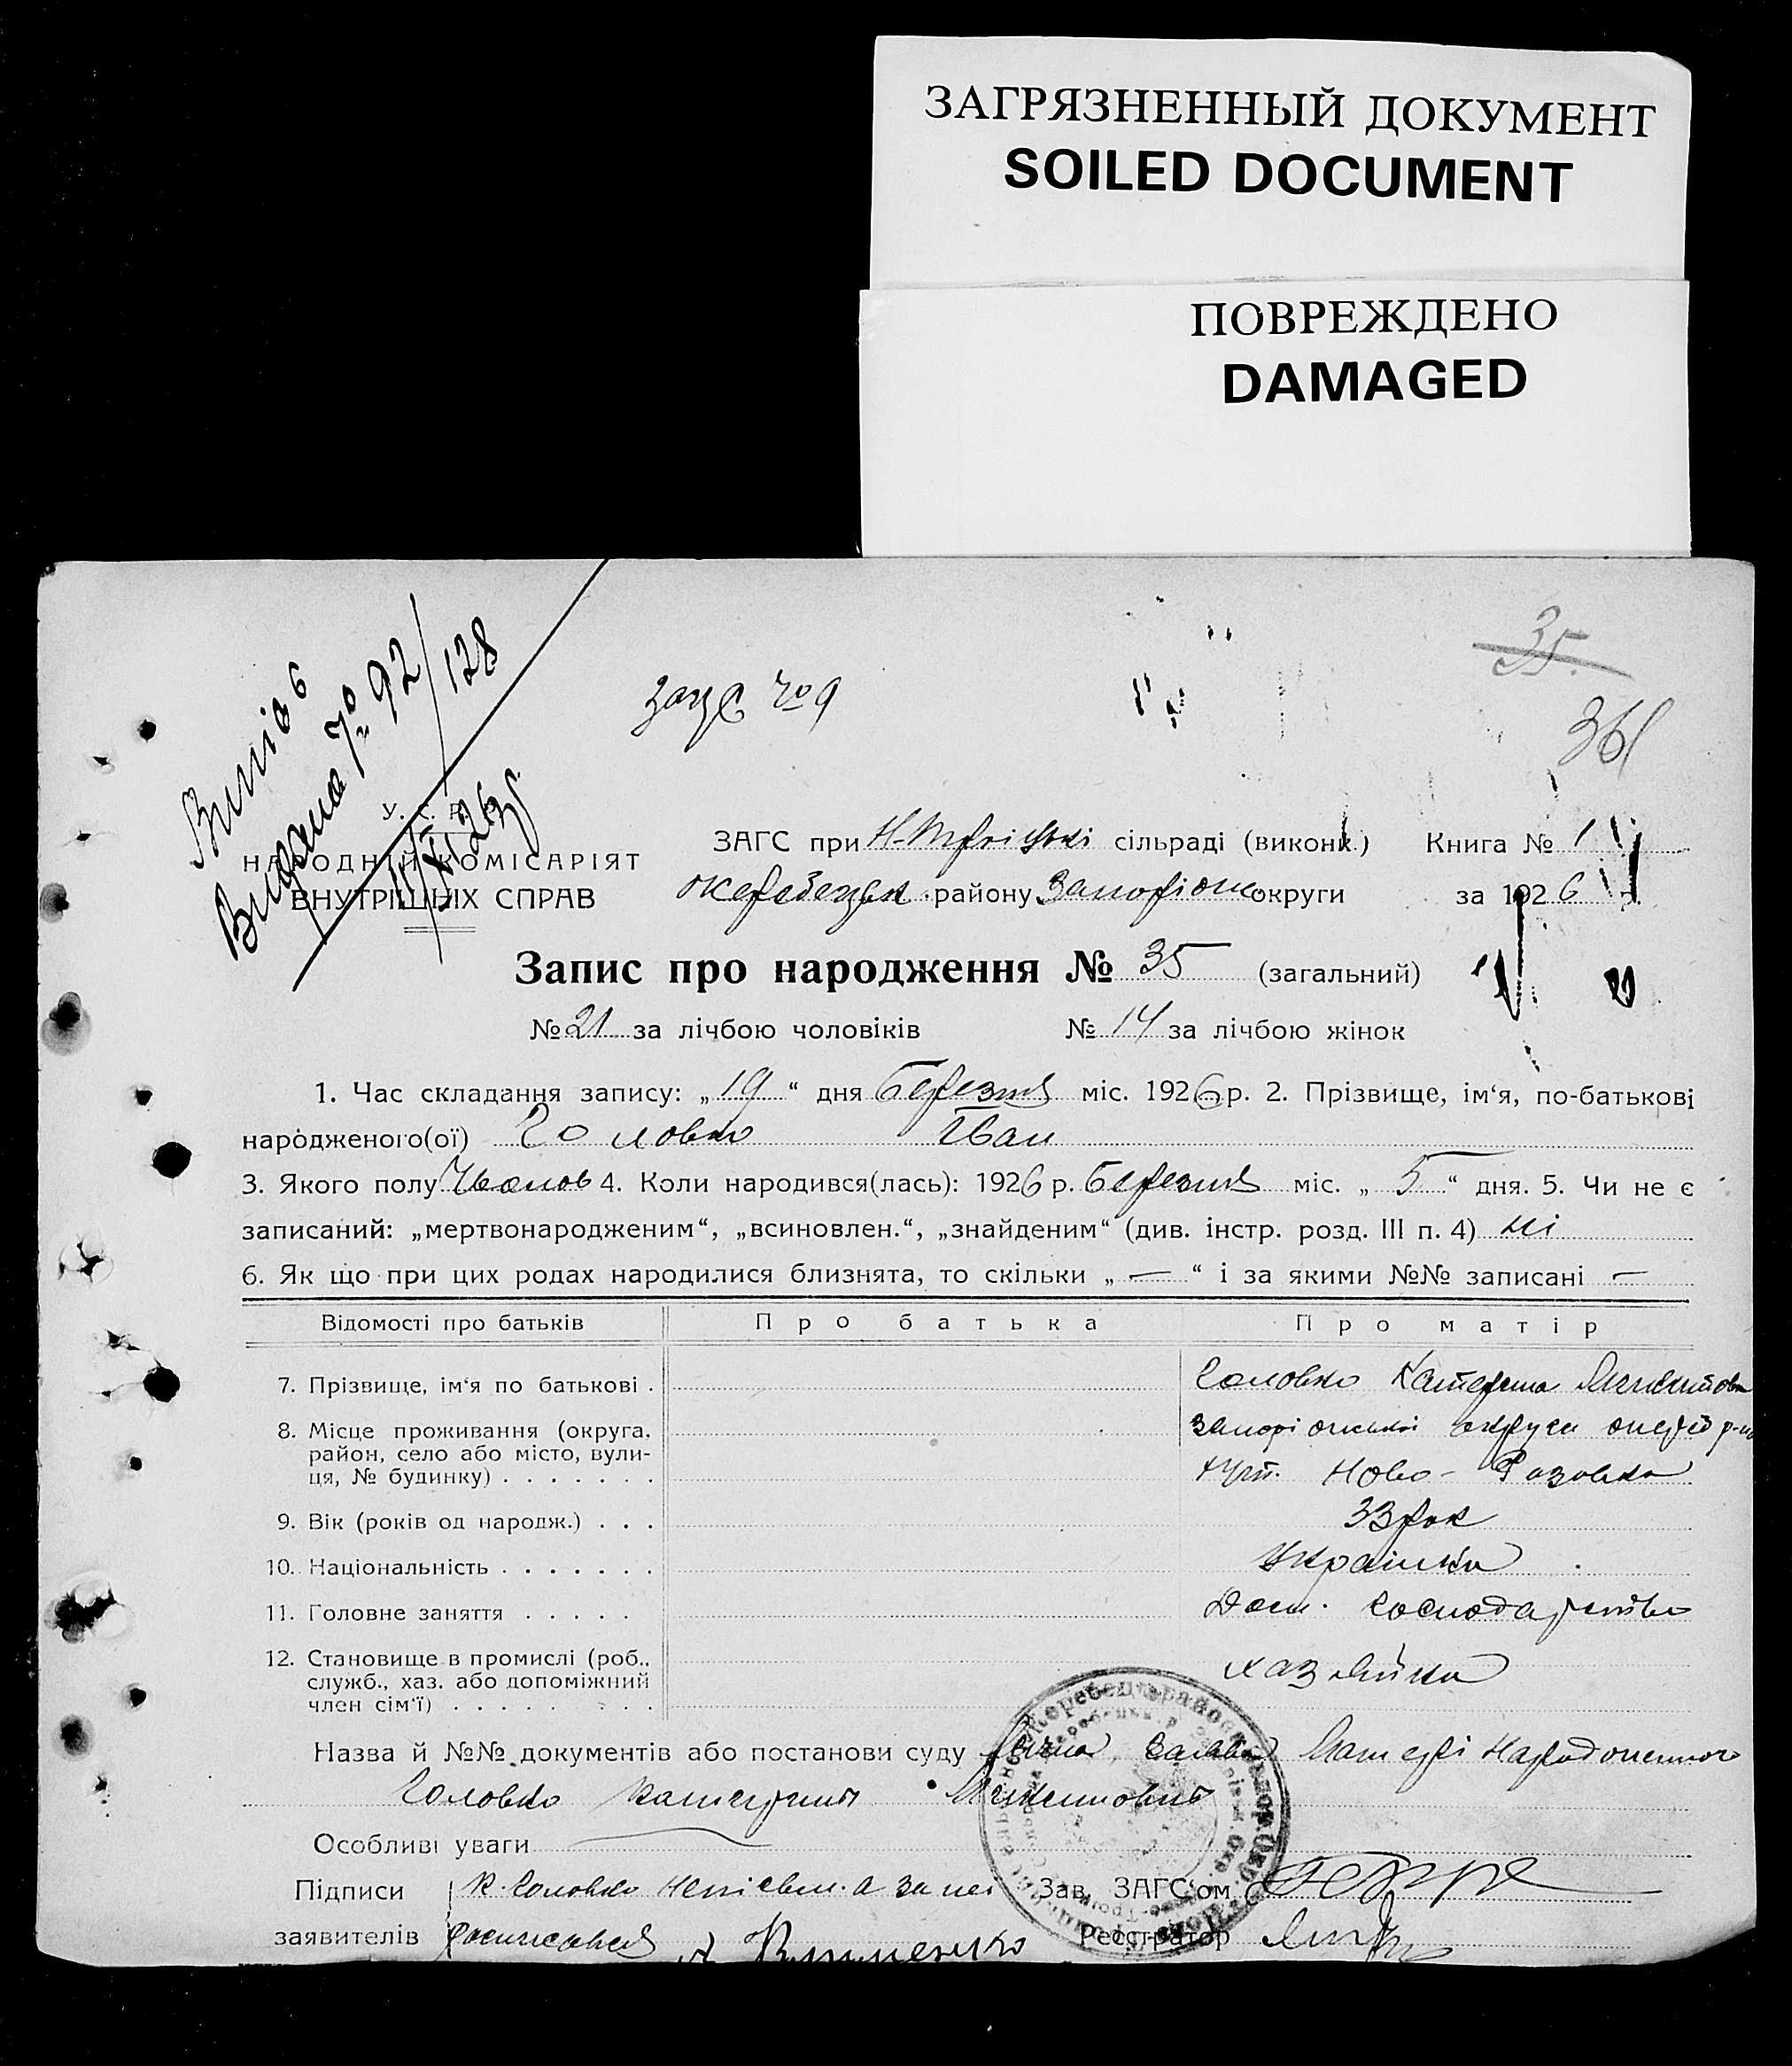 ЗАГРЯЗНЕННЫЙ ДОКУМЕНТ
SOILED DOCUMENT
ПОВРЕЖДЕНО
DAMAGED
35.
361
Видана № 92/128
№ 9
У. С. Р. Р.
НАРОДНІЙ КОМІСАРІЯТ
ВНУТРІШНІХ СПРАВ
ЗАГС при сільраді (виконк.) Книга № 1
району Запоріж округи за 1926 р.
Запис про народження № 35 (загальний)
№ 21 за лічбою чоловіків № 14 за лічбою жінок
1. Час складання запису: „ 19 “ дня Березня міс. 1926 р. 2. Прізвище, ім‘я, по-батькові
народженого(ої) Головко Іван
3. Якого полу Чолов 4. Коли народився(лась): 1926 р. Березня міс. „ 5 “ дня. 5. Чи не є
записаний: „мертвонародженим“, „всиновлен.“, „знайденим“ (див. інстр. розд. III п. 4) ні
6. Як що при цих родах народилися близнята, то скільки „ — “ і за якими №№ записані —
Відомості про батьків Про батька Про матір
7. Прізвище, ім‘я по батькові . Головко Катерина
8. Місце проживання (округа, округи
район, село або місто, вули-
ця, № будинку) . . . . . . . хут. Ново-
9. Вік (років од народж.) . . . 33 рок
10. Національність . . . . . . . Українка
11. Головне заняття . . . . . Дом. господарство
12. Становище в промислі (роб., хазяйка
служб., хаз. або допоміжний
член сім‘ї) . . . . . . . .
Назва й №№ документів або постанови суду заява матері
Головко Катерини
Особливі уваги
Підписи К. Головко неписьм. а за неї Зав. ЗАГС‘ом
заявителів росписався Клименко Реєстратор